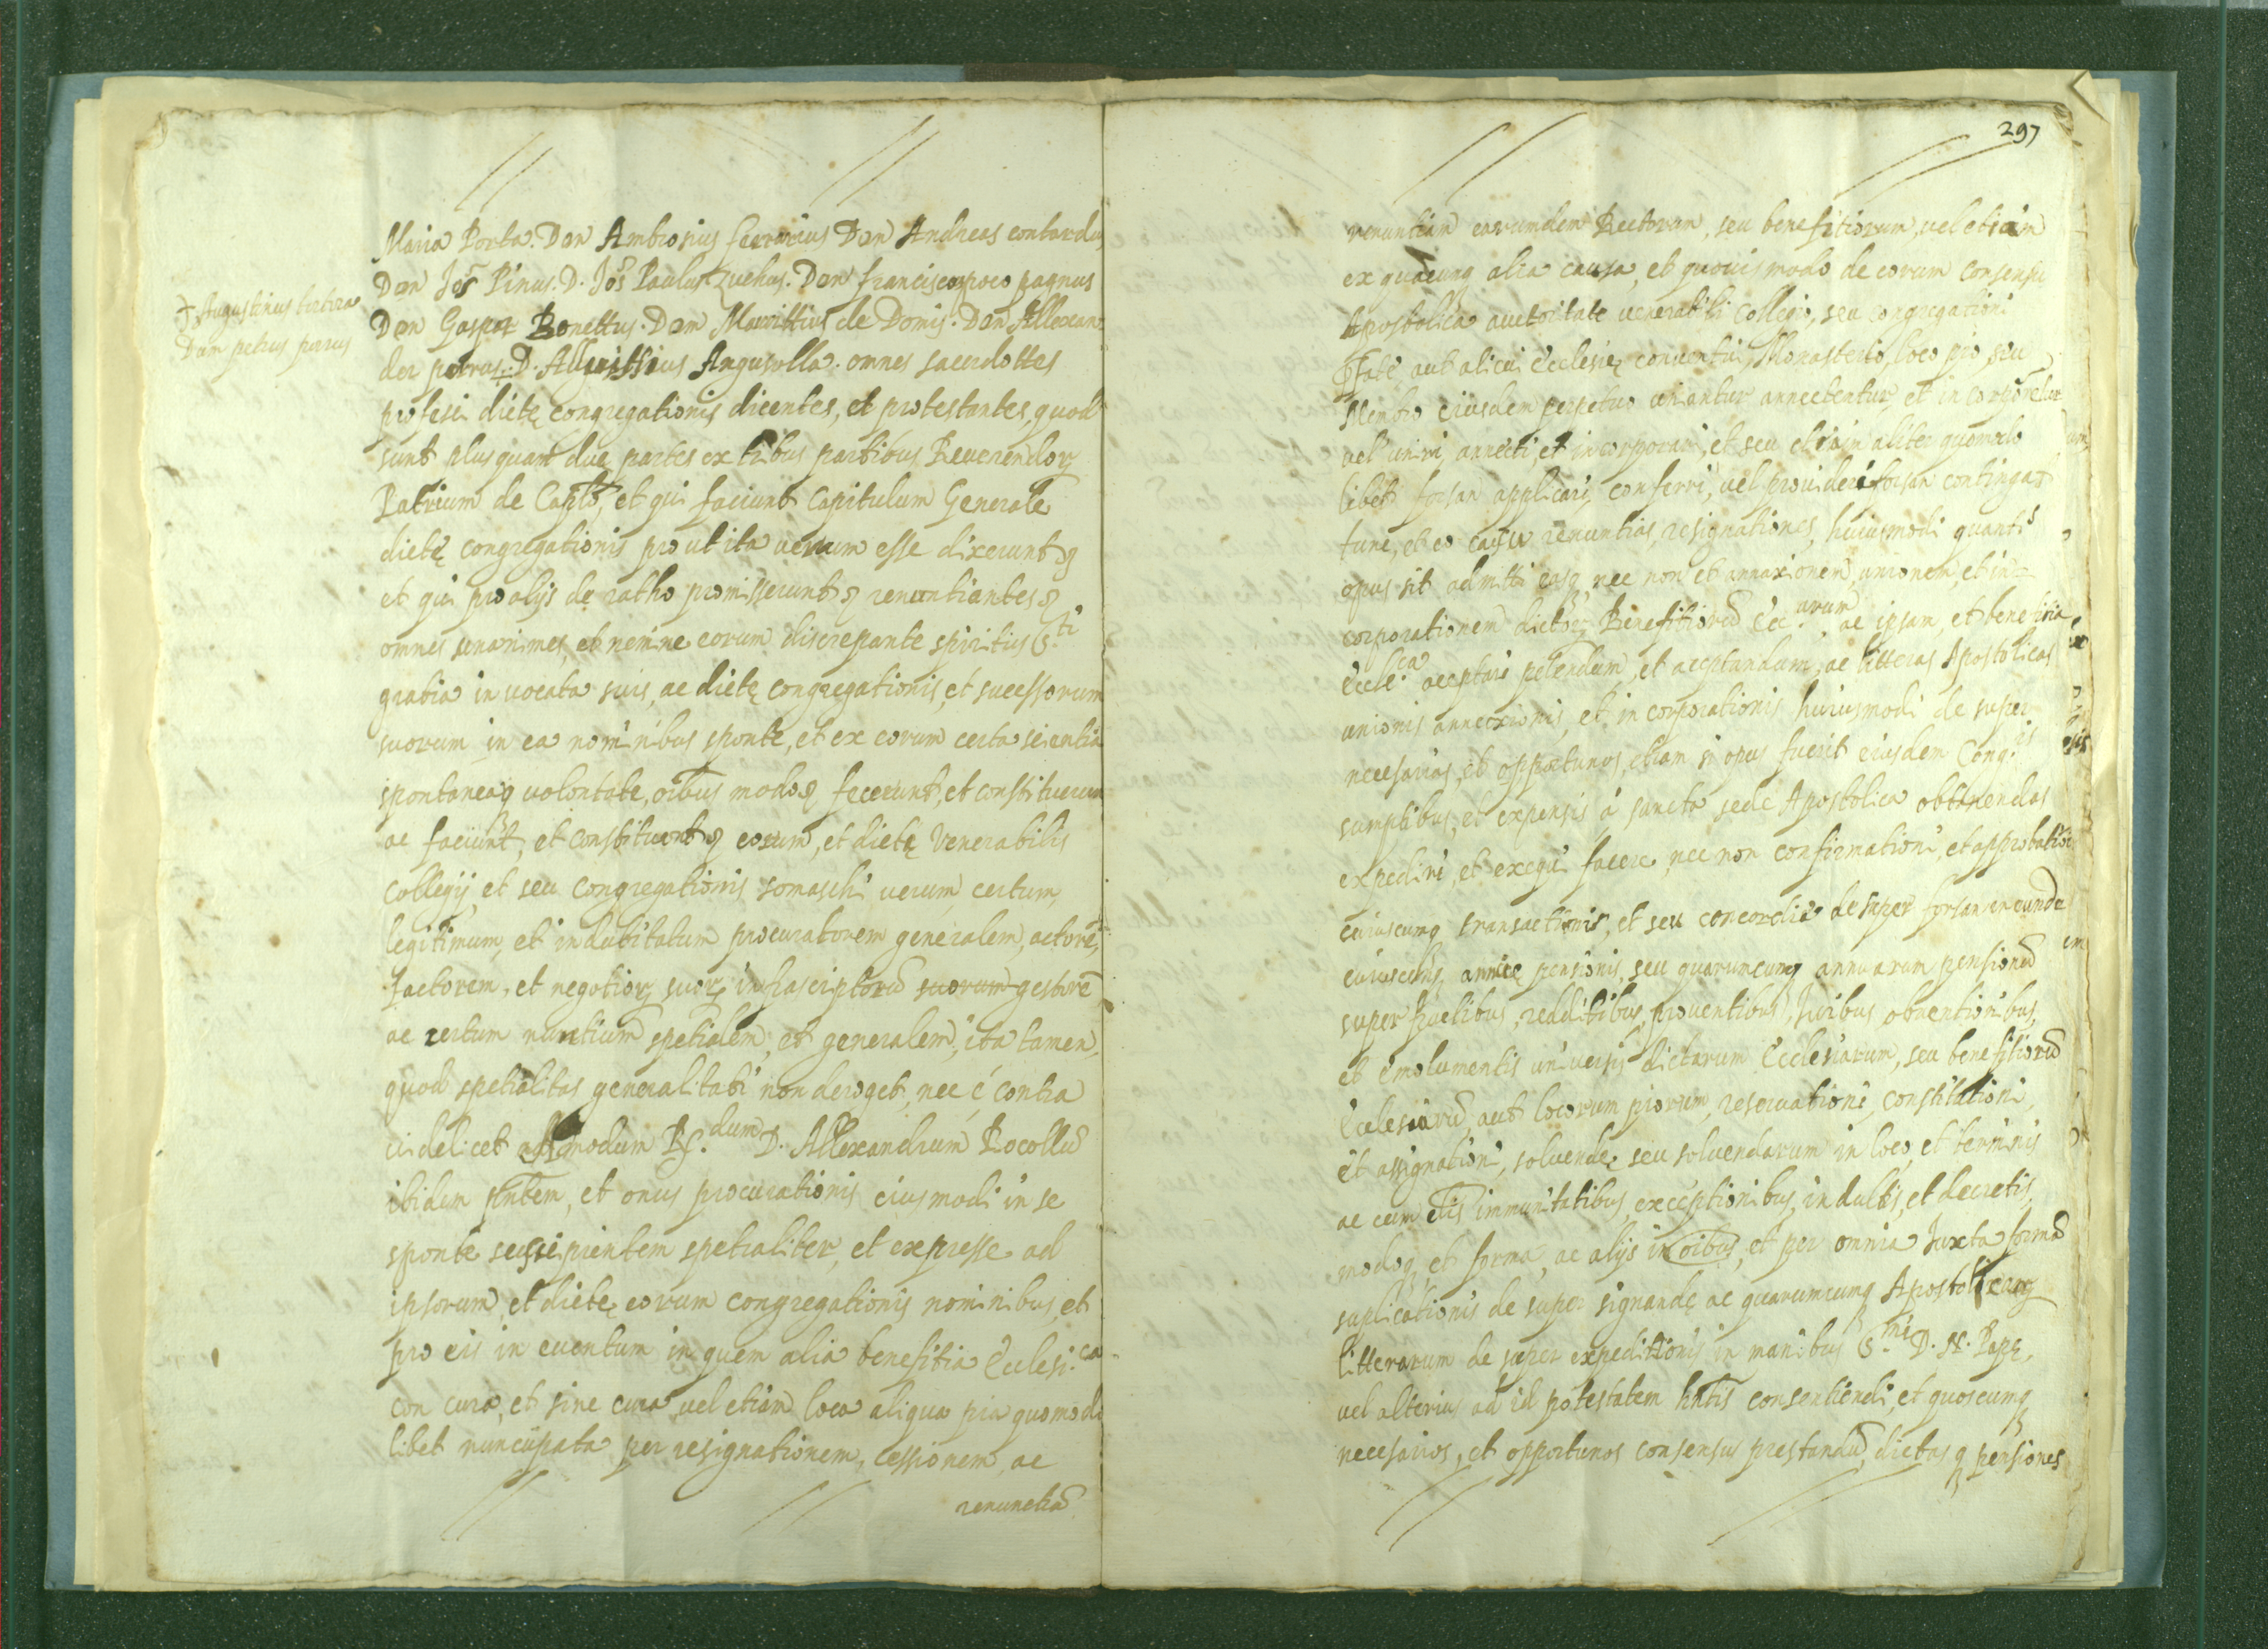 Maria Porta. Don Ambrosius ferrarius Don Andreas contardus
Don Jos Pinus. D. Jos Paulus Don franciscus pagnus
✝ Augustinus
Don petrus
Don Gaspar Bonettus. Dom Maurittius de Domis. Don Allexan
der petrus. D. Angusolla. omnes sacerdottes
profesi dictę congregationis dicentes, et protestantes, quod
sunt plus quam duę partes ex tribus partibus Reverendorꝝ
Patrium de Caplo, et qui faciunt Capitulum Generale
dictę congregationis prout ita verum esse dixerunt
et qui pro alijs de ratho promisserunt renuntiantes
omnes unanimes, et nemine eorum discrepante spiritus S.ti
gratia in uocata suis, ac dictę congregationis, et sucessorum
suorum in ea nominibus sponte, et ex eorum certa scientia
spontaneaq uolontate, oibus modo fecerunt, et constituerunt
ac faciunt, et constituunt eorum, et dictę Venerabilis
Collegij, et seu Congregationis somaschi uerum, certum,
legitimum, et indubitatum procuratorem generalem, actore,
factorem, et negotiorꝝ suorꝝ infrascriptoru suorum gestore
ac certum nuntium spetialem, et generalem, ita tamen,
quod spetialitas generalitati non deroget, nec é contra
uidelicet admodum R.dum D. Allexandrum Bocollu
ibidem pntem, et onus procurationis eiusmodi in se
sponte sussipientem spetialiter, et expresse ad
ipsorum, et dictę eorum congregationis nominibus, et
pro eis in euentum in quem alia benefitia Eclesi.ca
con cura, et sine cura, uel etiam loca aliqua pia quomodo
libet nuncupata per resignationem, cessionem, ac
renuncia
297
renuntiam eorumdem Rectorum, seu benefitiorum, uel etiam
ex quacunq alia causa, et quouis modo de eorum consensu
Apostolica auctoritate uenerabili Collegio, seu congregationi
Pfate, aut alicui Ecclesię conuentui, Monasterio, loco pio, seu
Membro eiusdem perpetuo uniantur annectentur, et in corporetur
uel uniri, annecti, et incorporari, et seu etiam aliter quomodo
libet forsan applicari, conferri, uel prouideri forsan contingat
tunc, et eo casu renuntias, resignationes, huiusmodi quanti
opus sit admitti easq, nec non et annaxionem, unionem, et in=
corporationem dictorꝝ Benefitioru Ecc.arum ac ipsam, et benefitia
Eccle.ca acceptari petendum, et acceptandum, ac litteras Apostolicas
unionis annectionis, et in corporationis huiusmodi de super
necesarias, et oppotunos, etiam si opus fuerit eiusdem Cong.is
sumptibus, et expensis á sancta sede Apostolica obtinendas
expediri, et exequi facere, nec non confirmationi, et approbatio
cuiuscunq transactionis, et seu concordie de super forsan ineunde
cuiuscunq annuę pensionis, seu quaruncunq annuarum pensionu
super fructibus, redditibus, prouentibus, Juribus, obuentionibus,
et emolumentis uniuersis dictarum Ecclesiarum, seu benefitioru
Eclesiaru, aut locorum piorum, reseruationi, constitutioni,
et assignationi, soluendę, seu soluendarum in loco, et terminis
ac cum illis immunitatibus, exceptionibus, in dultis, et decretis,
modoq, et forma, ac alijs in oibus, et per omnia Juxta forma
suplicationis de super signandę ac quarumcunq Apostolicarꝝ
litterarum de super expeditionis in manibus S.mi D. N. Papę,
uel alterius ad id potestatem hntis consentiendi, et quoscunq
necesarios, et opportunos consensus prestandu, dictas q pensiones